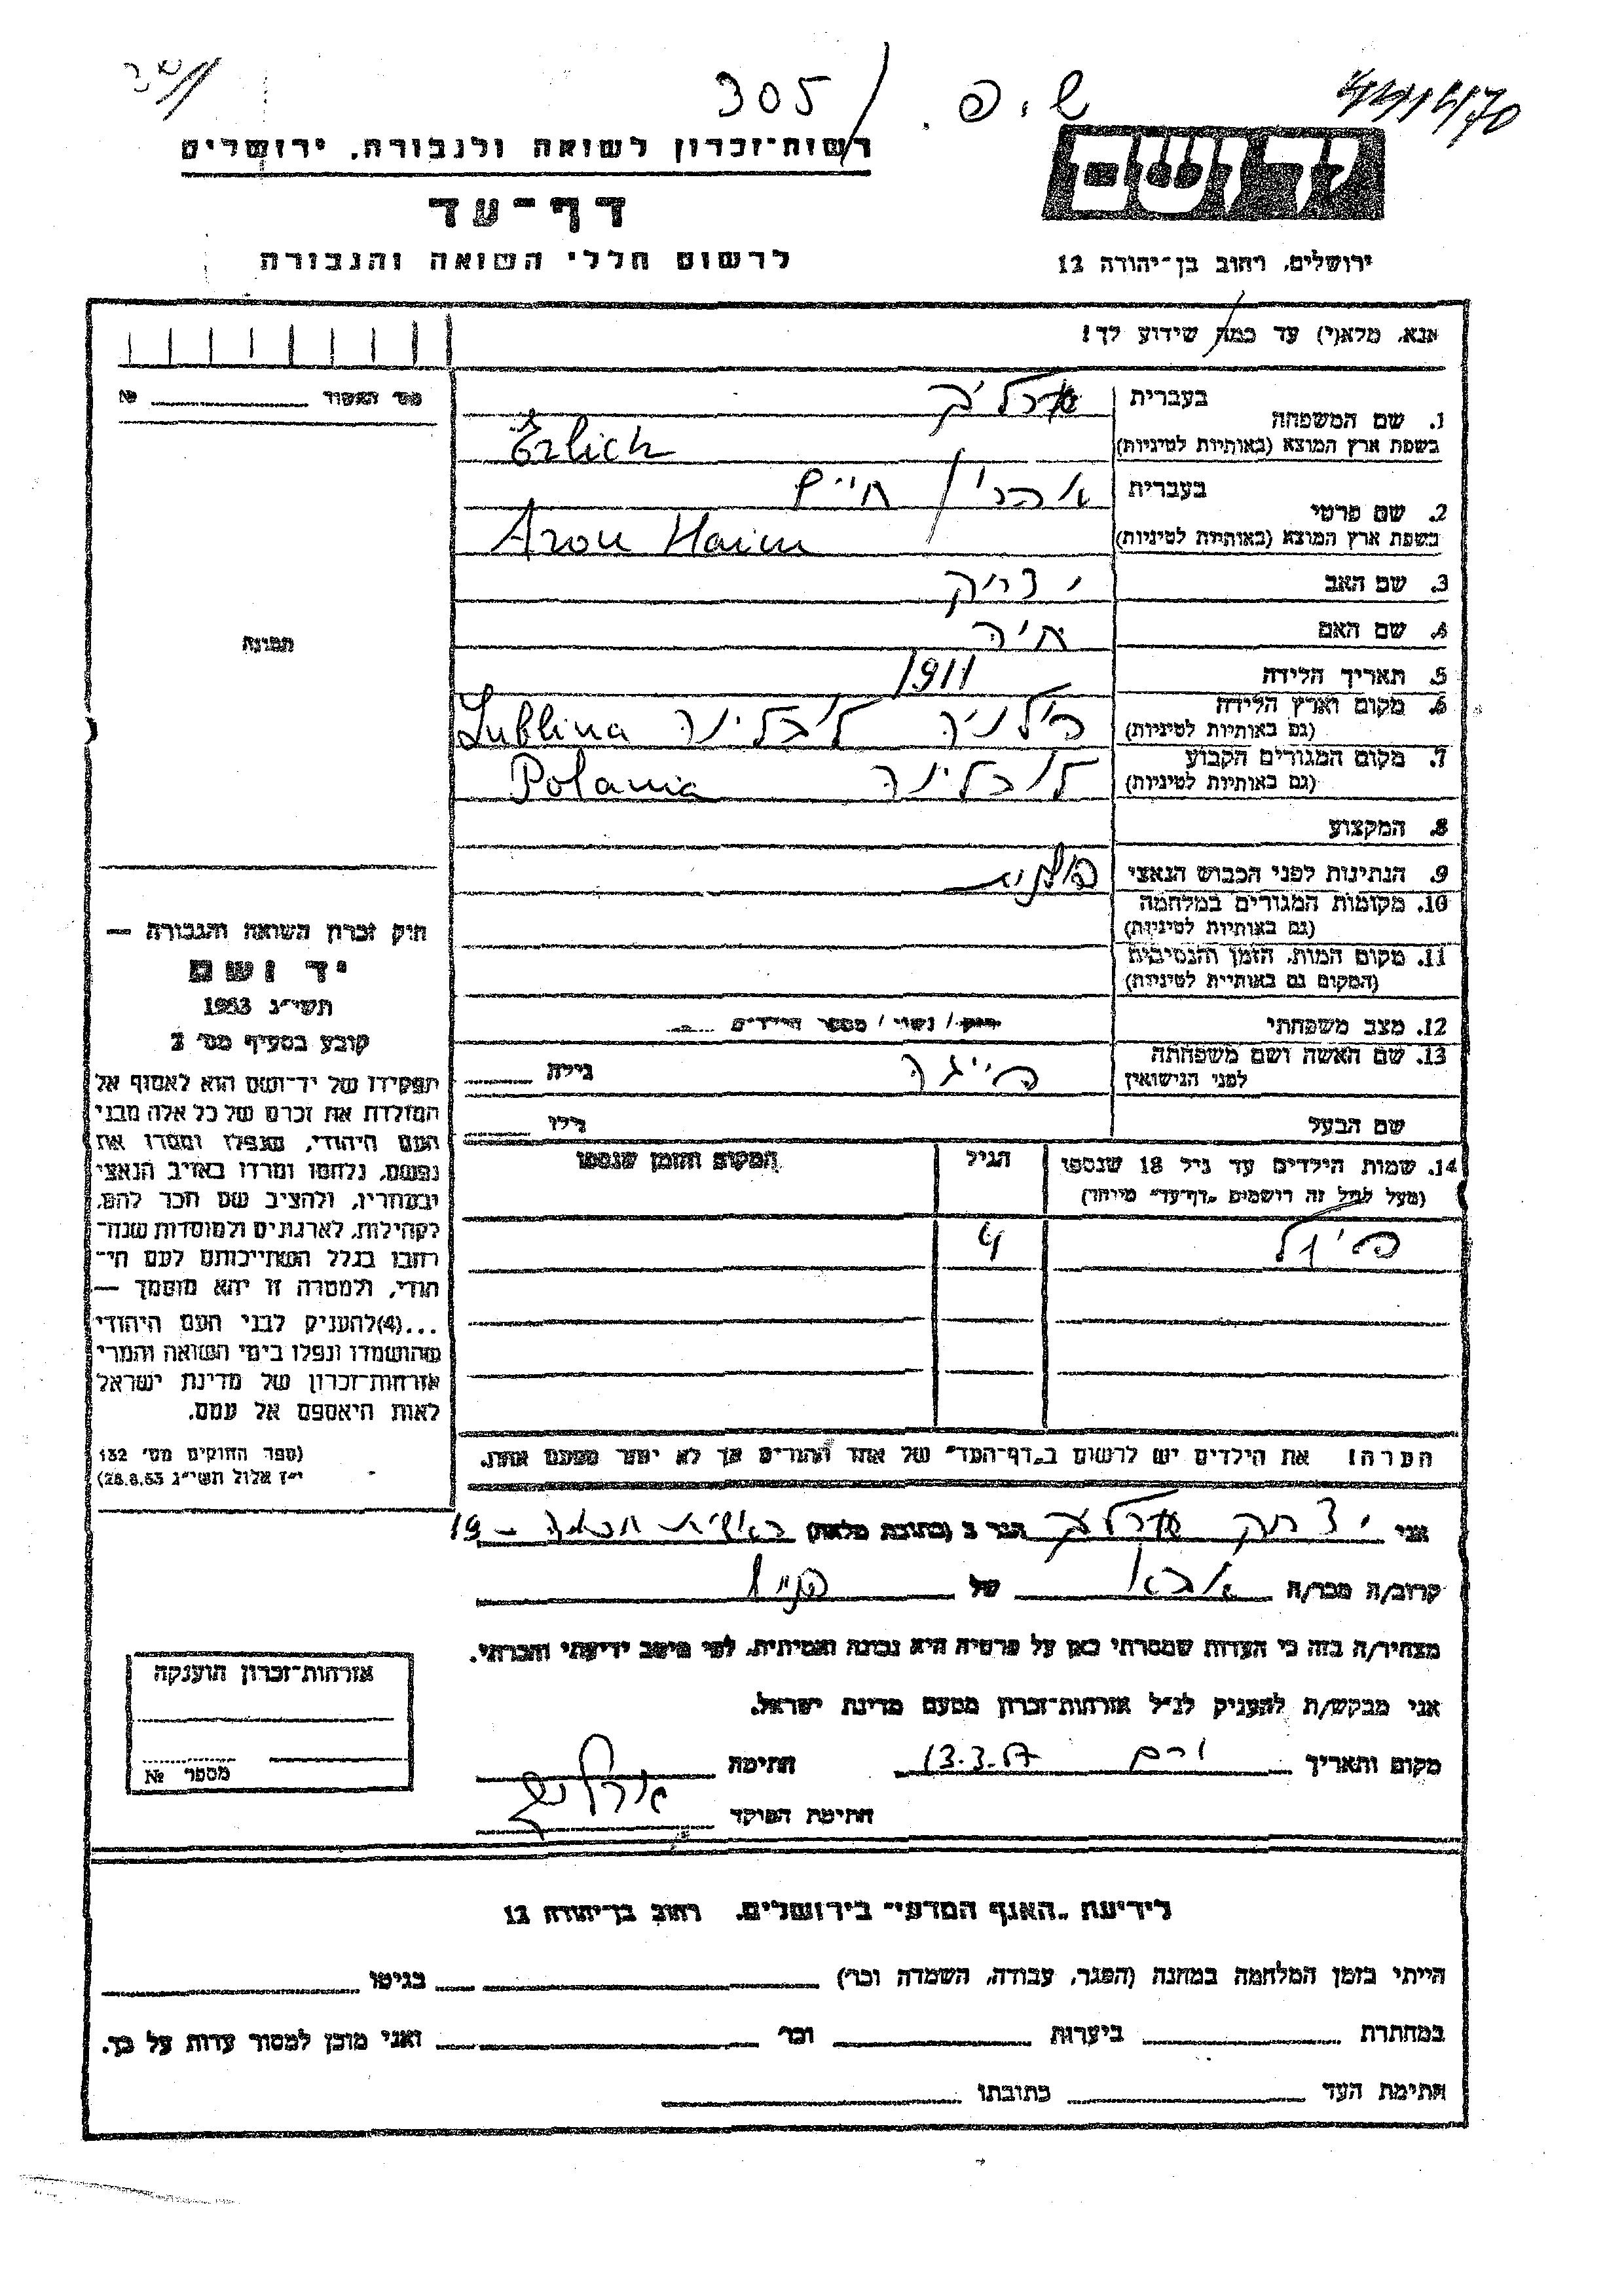 305 / ש.פ.
רשות-זכרון לשואה ולגבורה, ירושלים
דף-עד
לרשום חללי השואה והגבורה
יד ושם
ירושלים, רחוב בן-יהודה 12
אנא, מלא(י) עד כמה שידוע לך!
מס' האשור № ________
תמונה
1. שם המשפחה
בעברית ארליך
בשפת ארץ המוצא (באותיות לטיניות) Erlich
2. שם פרטי
בעברית אהרון חיים
בשפת ארץ המוצא (באותיות לטיניות) Aron Haim
3. שם האב יצחק
4. שם האם חיה
5. תאריך הלידה 1911
6. מקום וארץ הלידה פולניה לובלינה Lublina
(גם באותיות לטיניות)
7. מקום המגורים הקבוע לובלינה Polania
(גם באותיות לטיניות)
8. המקצוע
9. הנתינות לפני הכבוש הנאצי פולנית
10. מקומות המגורים במלחמה
(גם באותיות לטיניות)
11. מקום המות, הזמן והנסיבות
(המקום גם באותיות לטיניות)
12. מצב משפחתי רוק / נשוי / מספר הילדים
13. שם האשה ושם משפחתה פייגה גילה
לפני הנישואין
שם הבעל גילו
14. שמות הילדים עד גיל 18 שנספו הגיל המקום והזמן שנספו
(מעל לגיל זה רושמים "דף-עד" מיוחד)
4
הערה! את הילדים יש לרשום ב"דף-העד" של אחד ההורים אך לא יותר מפעם אחת.
חוק זכרון השואה והגבורה —
יד ושם
תשי"ג 1953
קובע בסעיף מס' 2
תפקידו של יד-ושם הוא לאסוף אל
המולדת את זכרם של כל אלה מבני
העם היהודי, שנפלו ומסרו את
נפשם, נלחמו ומרדו באויב הנאצי
ובעוזריו, ולהציב שם וזכר להם,
לקהילות, לארגונים ולמוסדות שנח-
רבו בגלל השתייכותם לעם הי-
הודי, ולמטרה זו יהא מוסמך —
...(4)להעניק לבני העם היהודי
שהושמדו ונפלו בימי השואה והמרי
אזרחות-זכרון של מדינת ישראל
לאות היאספם אל עמם.
(ספר החוקים מס' 132
י"ז אלול תשי"ג 28.8.53)
אני יצחק ארליך הגר ב (כתובת מלאה) 19
קרוב/ה מכר/ה של
מצהיר/ה בזה כי העדות שמסרתי כאן על פרטיה היא נכונה ואמיתית, לפי מיטב ידיעתי והכרתי.
אני מבקש/ת להעניק לנ"ל אזרחות-זכרון מטעם מדינת ישראל.
מקום ותאריך 13.3.57 חתימה
חתימת הפוקד
אזרחות-זכרון הוענקה
מספר №
לידיעת "האגף המדעי" בירושלים, רחוב בן-יהודה 12
הייתי בזמן המלחמה במחנה (הסגר, עבודה, השמדה וכו') ________ בגיטו ________
במחתרת ________ ביערות ________ וכו' ________ ואני מוכן למסור עדות על כך.
חתימת העד ________ כתובתו ________